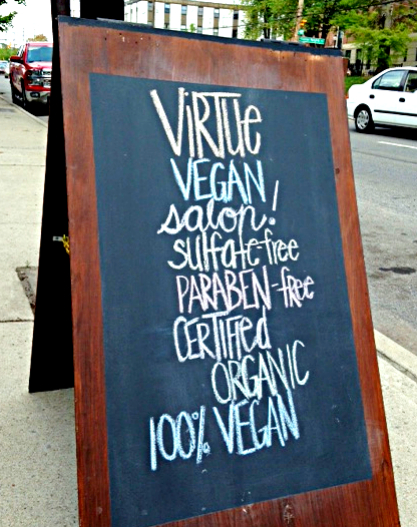 ViRTUe
VEGAN
salon!
sulfate-free
PARABEN-free
CERTIFIED
ORGANIC
100% VEGAN